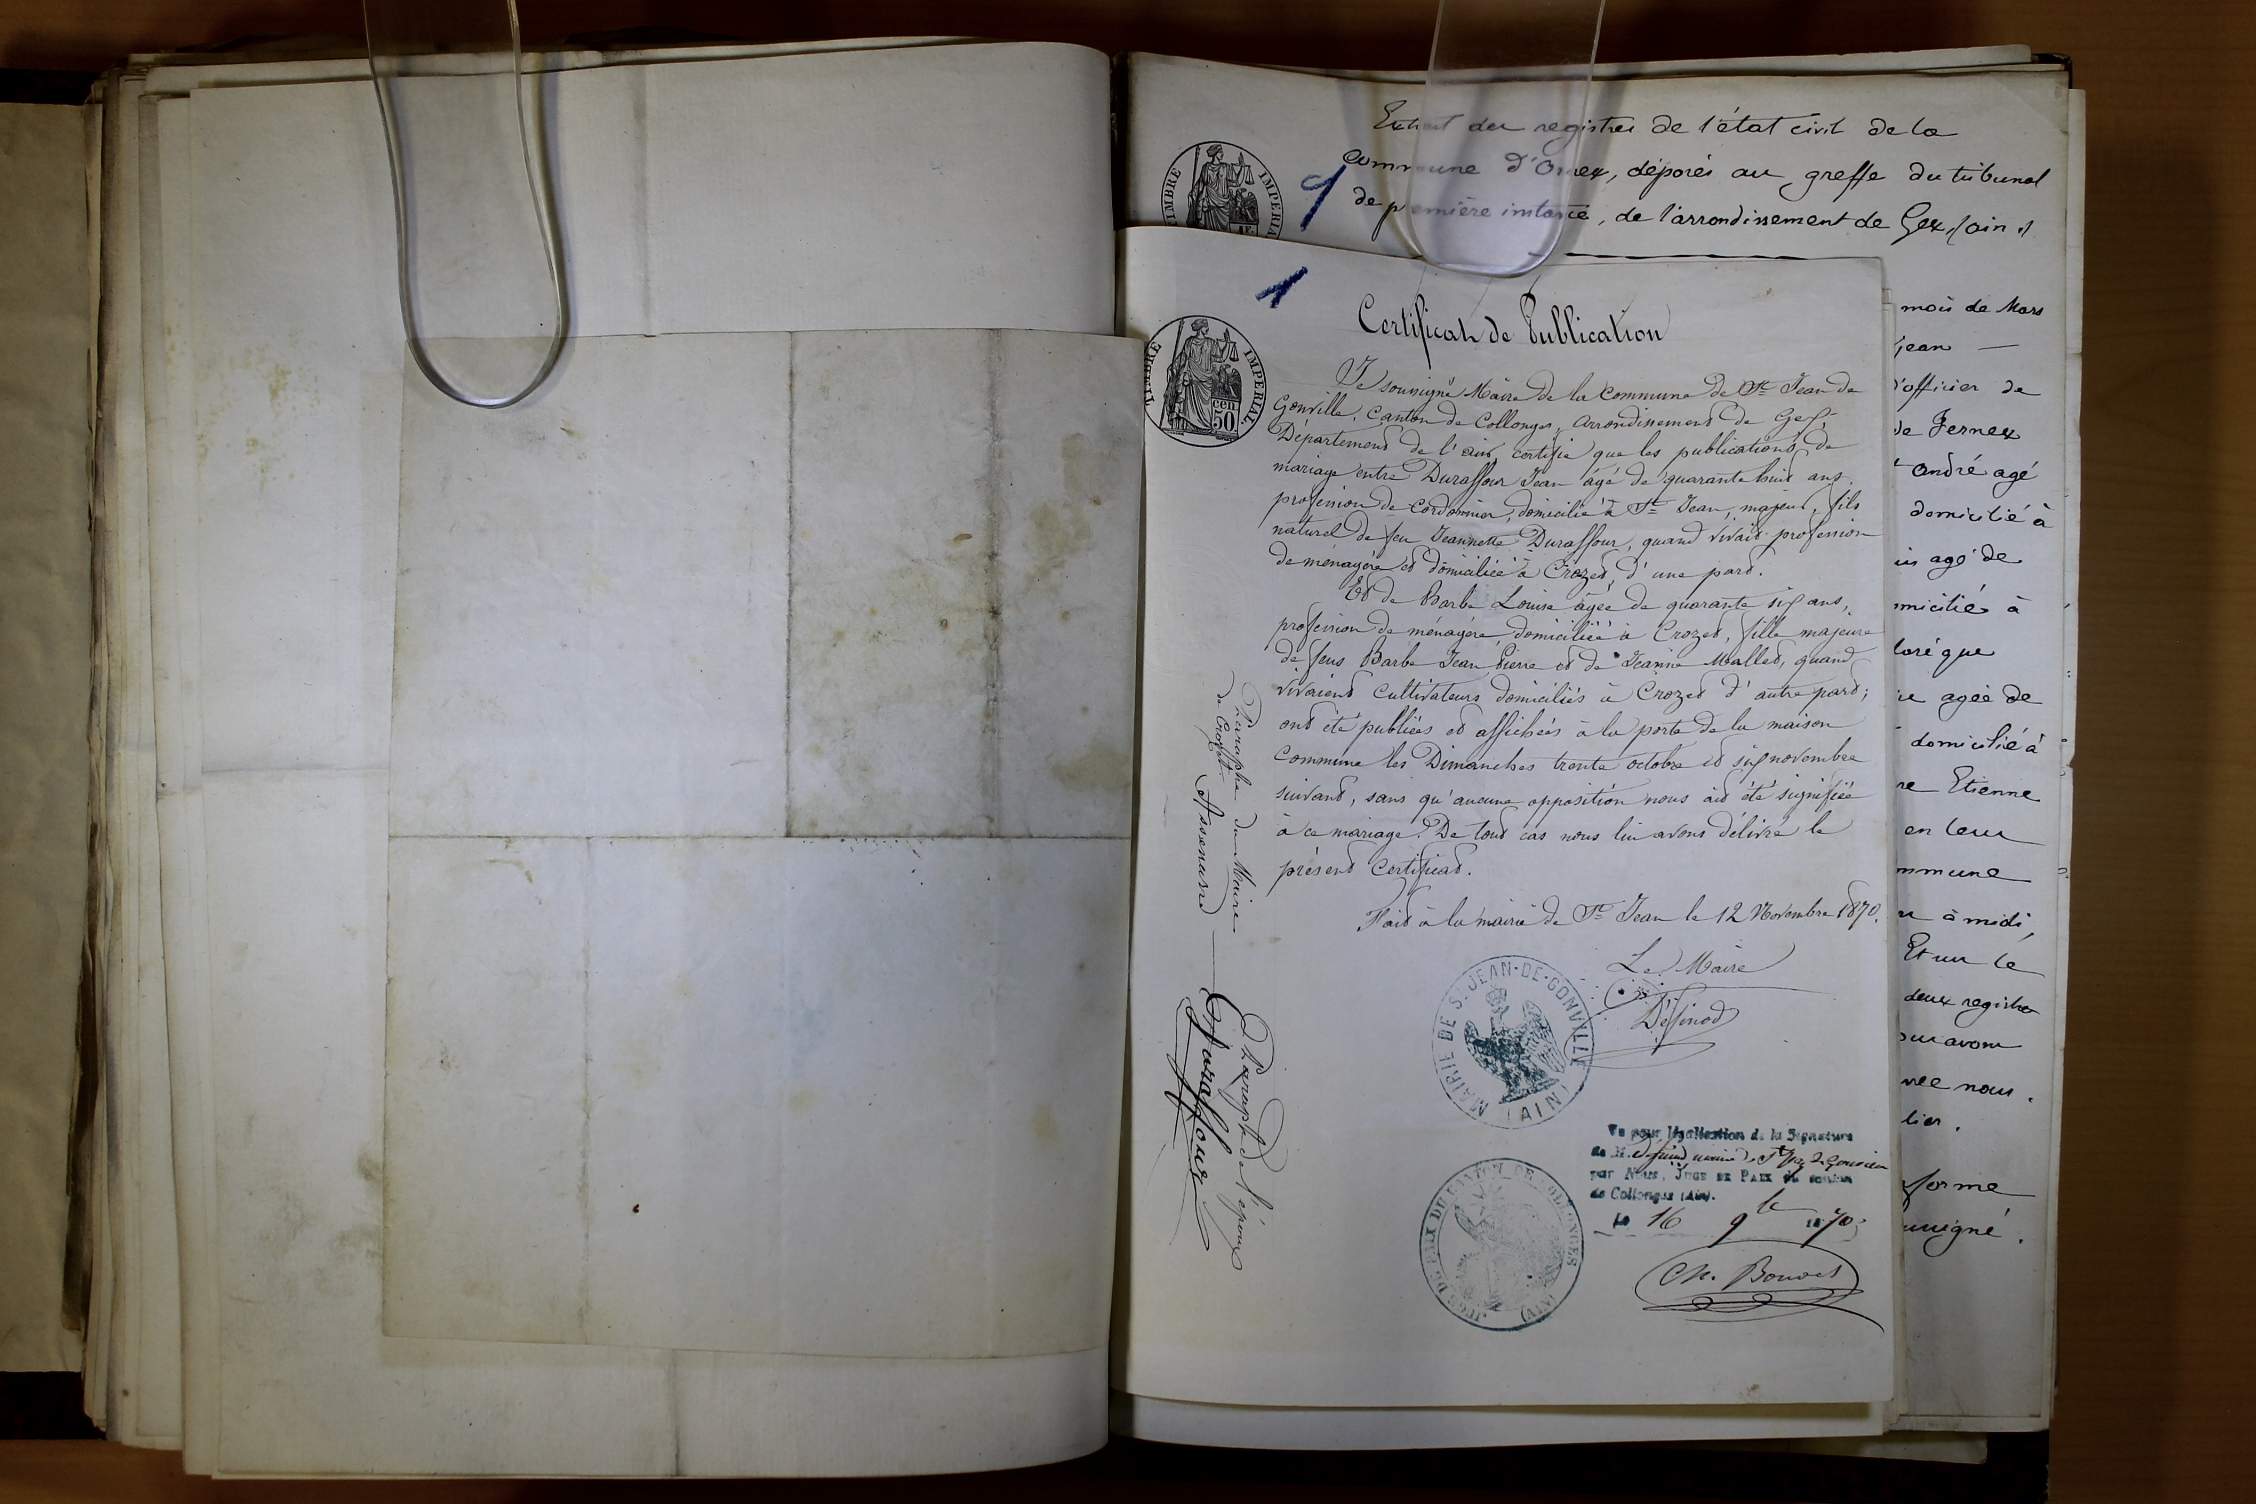 Extrait des registres de l'état civil de la
commune d'Ornex, déposés au greffe du tribunal
de première instance, de l'arrondissement de Gex, (ain)
TIMBRE IMPERIAL
1
TIMBRE IMPERIAL
50 cen
Certificat de Publication
Je soussigné Maire de la Commune de St Jean de
Gonville, Canton de Collonges, arrondissement de Gex,
Département de l'ain, certifie que les publications de
mariage entre Duraffour Jean âgé de quarante huit ans,
profession de Cordonnier, domicilié à St Jean, majeur, fils
naturel de feu Jeannette Duraffour, quand vivait profession
de ménagère et domiciliée à Crozet, d'une part.
Et de Barbe Louise âgée de quarante six ans,
profession de ménagère, domiciliée à Crozet, fille majeure
de feus Barbe Jean Pierre et de Jeanne Mallet, quand
vivaient cultivateurs domiciliés à Crozet d'autre part;
ont été publiées et affichées à la porte de la maison
Commune les Dimanches trente octobre et six novembre
suivant, sans qu'aucune opposition nous ait été signifiée
à ce mariage. De tout cas nous lui avons délivré le
présent Certificat.
Fait à la mairie de St Jean le 12 Novembre 1870.
Le Maire
MAIRIE DE St JEAN-DE-GONVILLE (AIN)
Vu pour légalisation de la Signature
de M. maire de St Jean de Gonville
par Nous, JUGE DE PAIX du canton
de Collonges (Ain).
Le 16 9bre 1870
JUGE DE PAIX DU CANTON DE COLLONGES (AIN)
Ch. Bouvet
Paraphe du Maire
de Crozet
Paraphe de l'époux
Duraffour
mois de Mars
Jean —
l'officier de
de Fernex
André agé
domicilié à
agé de
micilié à
laré que
agée de
domicilié à
re Etienne
en leur
mmune
à midi,
Et sur le
deux registres
avons
vec nous.
lier.
forme
soussigné.